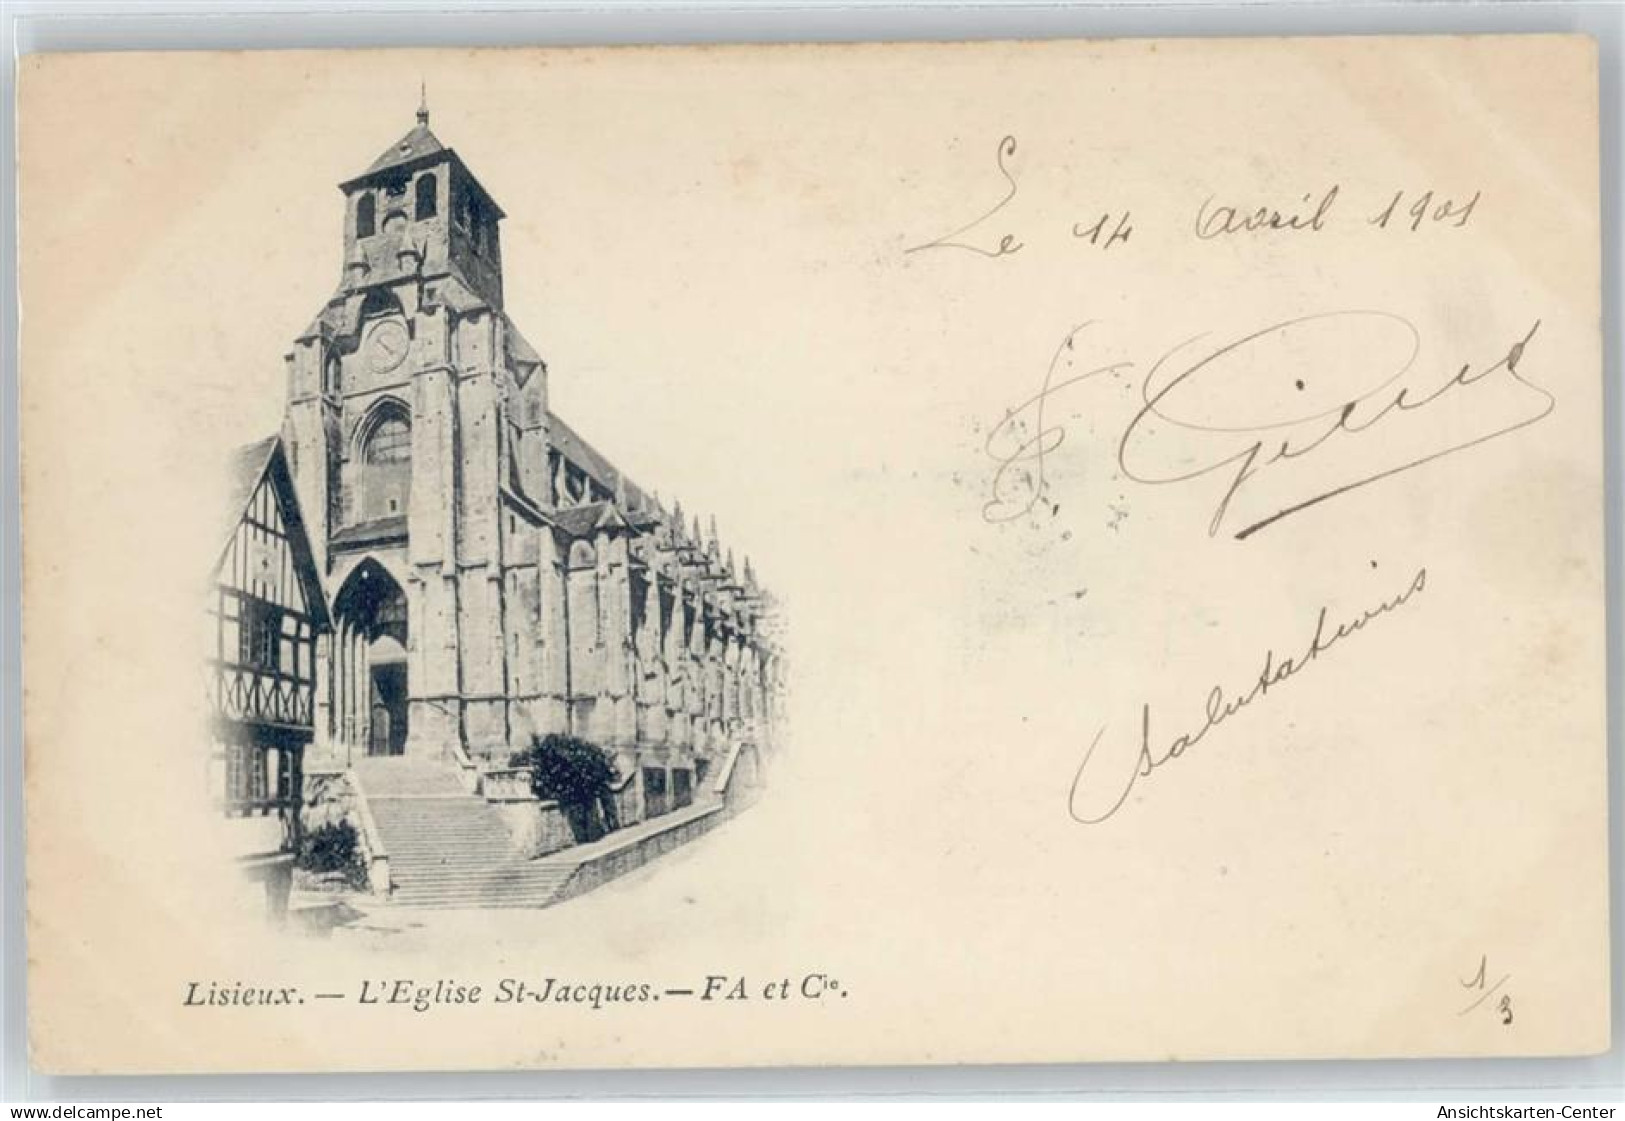 Le 14 Avril 1901
Salutations
Lisieux. — L'Eglise St-Jacques. — FA et Cie.
1/3
www.delcampe.net
Ansichtskarten-Center